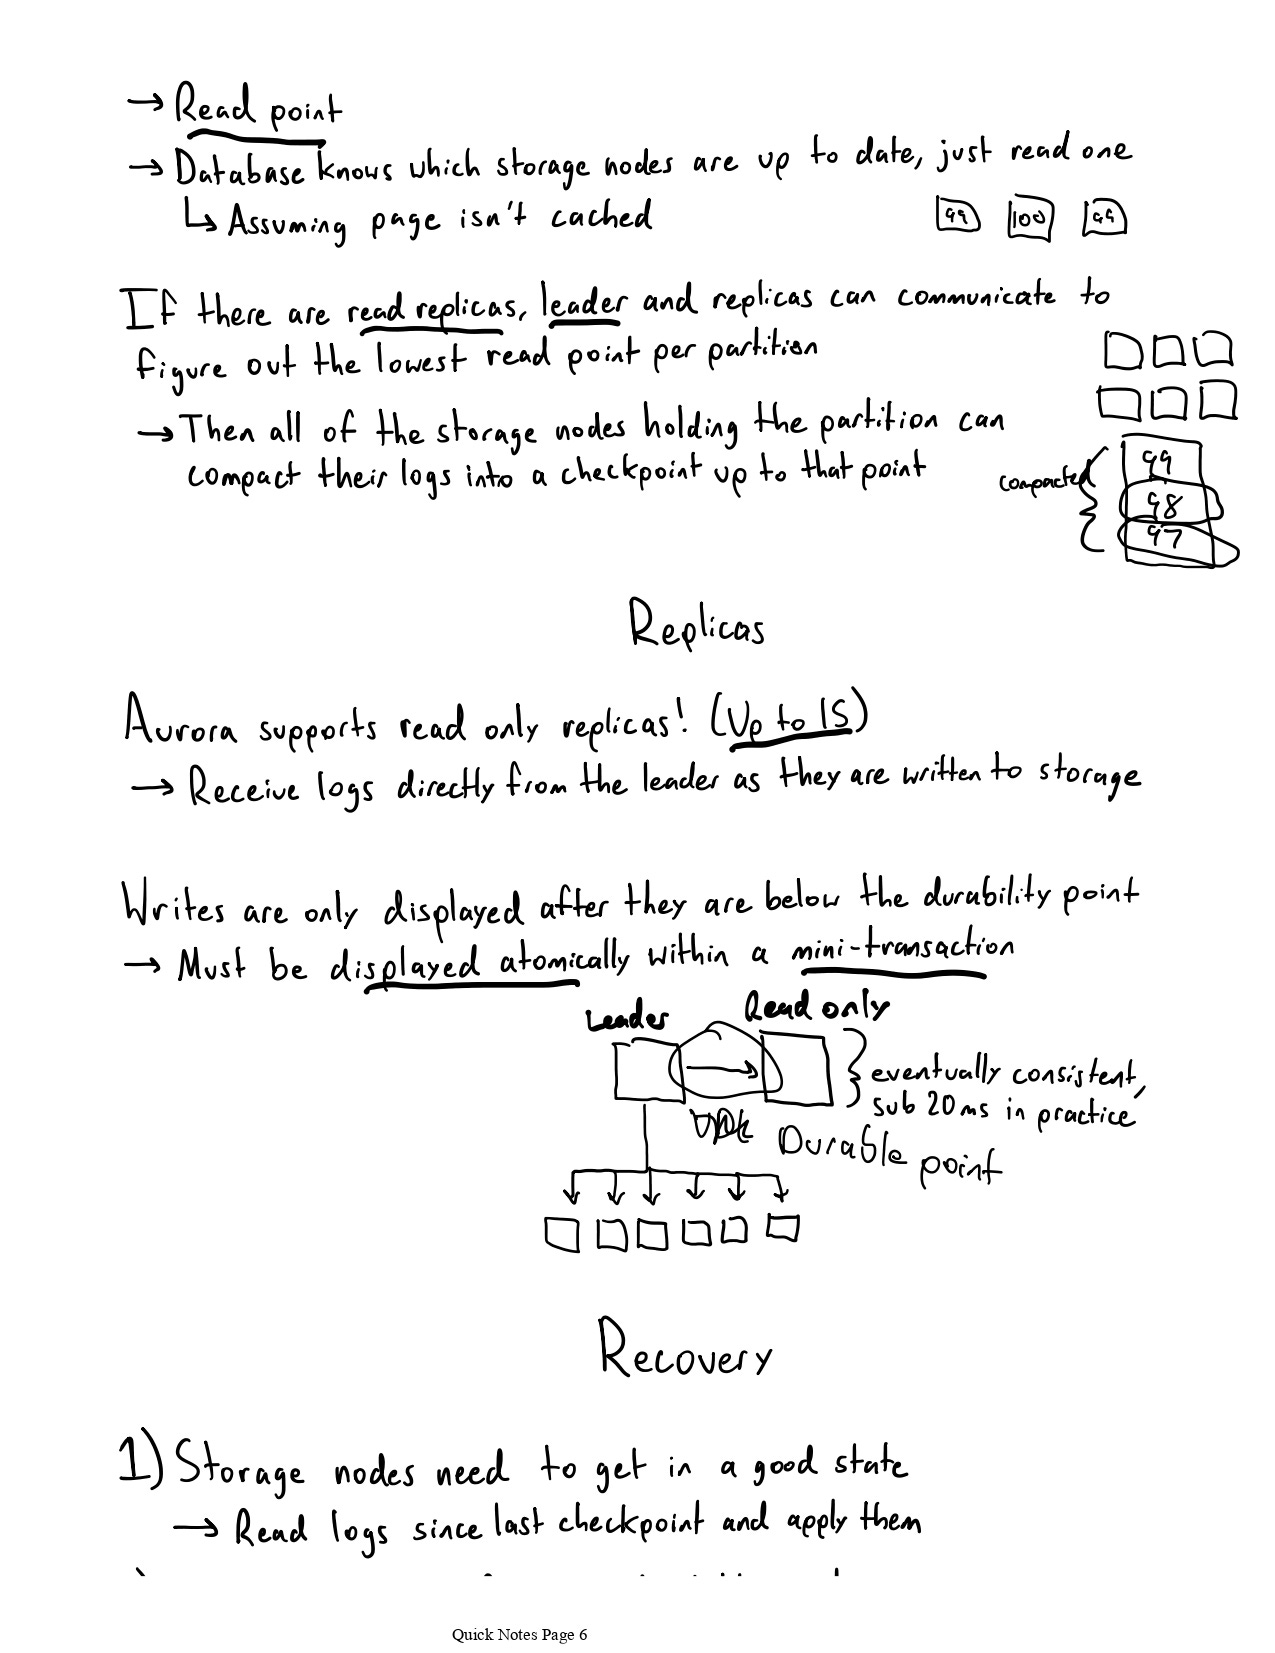 → Read point
→ Database knows which storage nodes are up to date, just read one
↳ Assuming page isn't cached
99 100 99
If there are read replicas, leader and replicas can communicate to
figure out the lowest read point per partition
→ Then all of the storage nodes holding the partition can
compact their logs into a checkpoint up to that point
compacted
99
98
97
Replicas
Aurora supports read only replicas! (Up to 15)
→ Receive logs directly from the leader as they are written to storage
Writes are only displayed after they are below the durability point
→ Must be displayed atomically within a mini-transaction
Leader Read only
eventually consistent,
sub 20ms in practice
Durable point
Recovery
1) Storage nodes need to get in a good state
→ Read logs since last checkpoint and apply them
Quick Notes Page 6